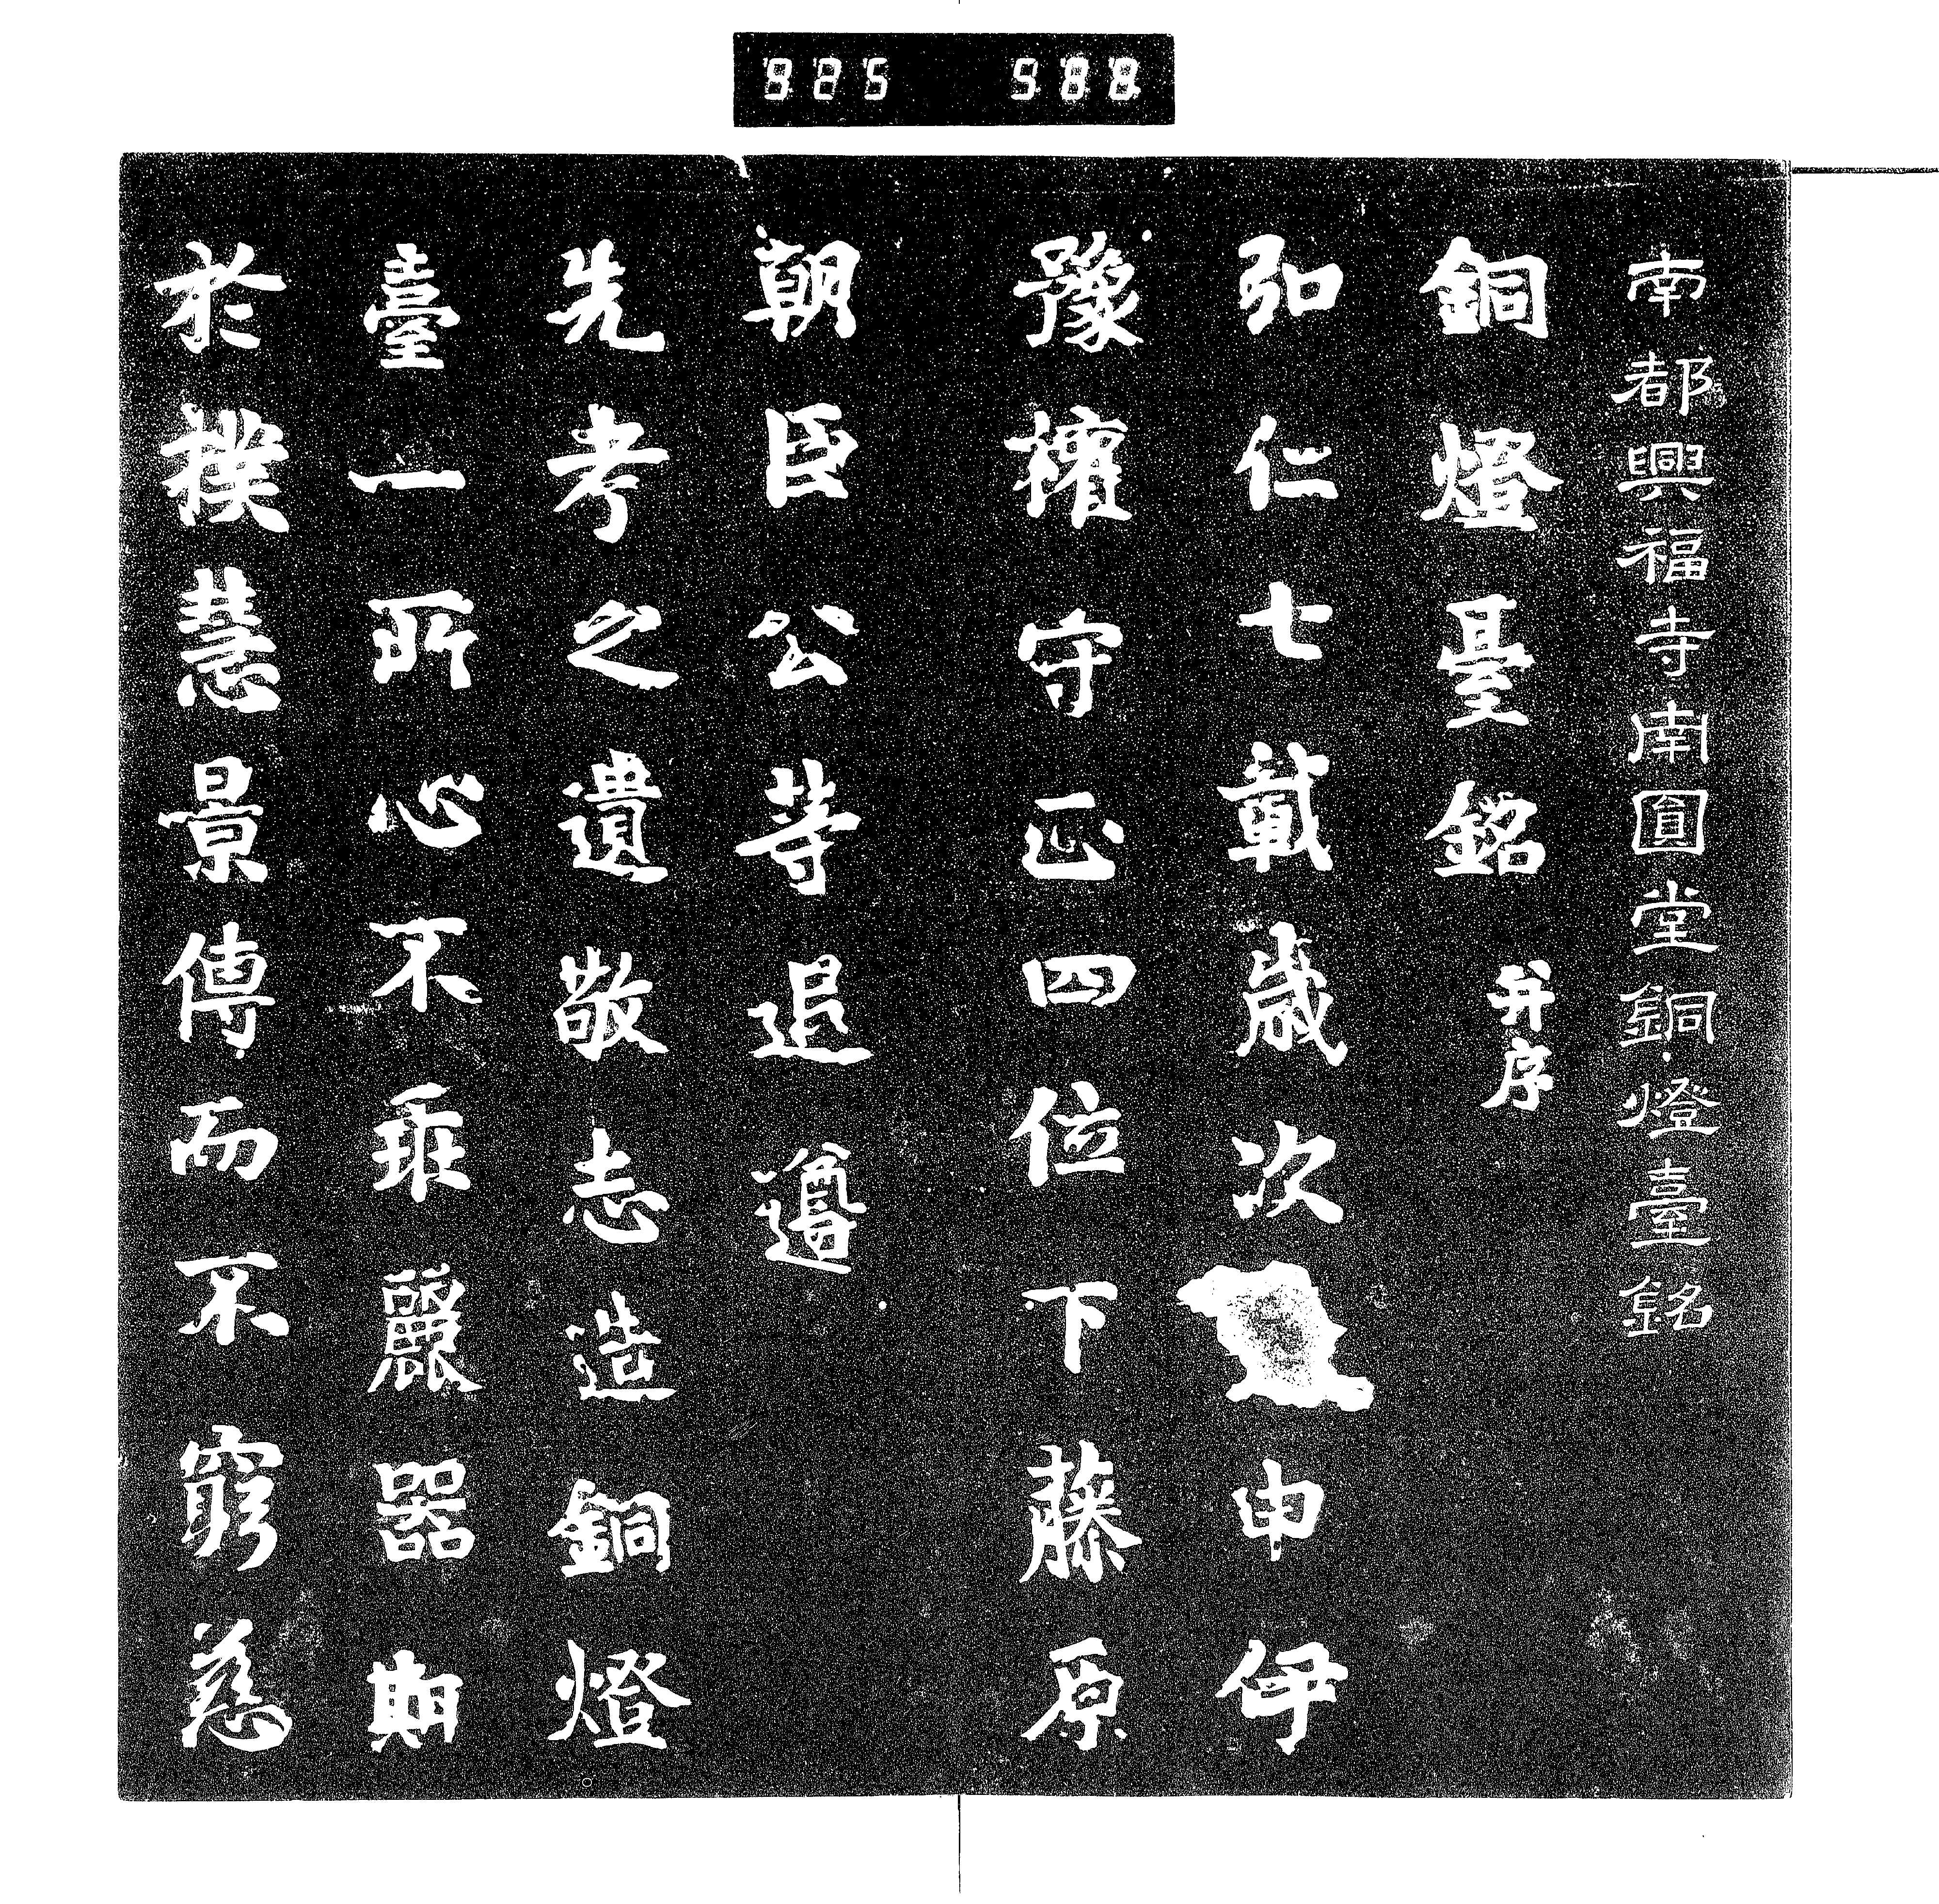 825 588
南都興福寺南圓堂銅燈臺銘
銅燈臺銘并序
弘仁七載歲次申伊
豫權守正四位下藤原
朝臣公等追遵
先考之遺敬志造銅燈
臺一所心不乖麗器期
於撲慧景傳而不窮慈